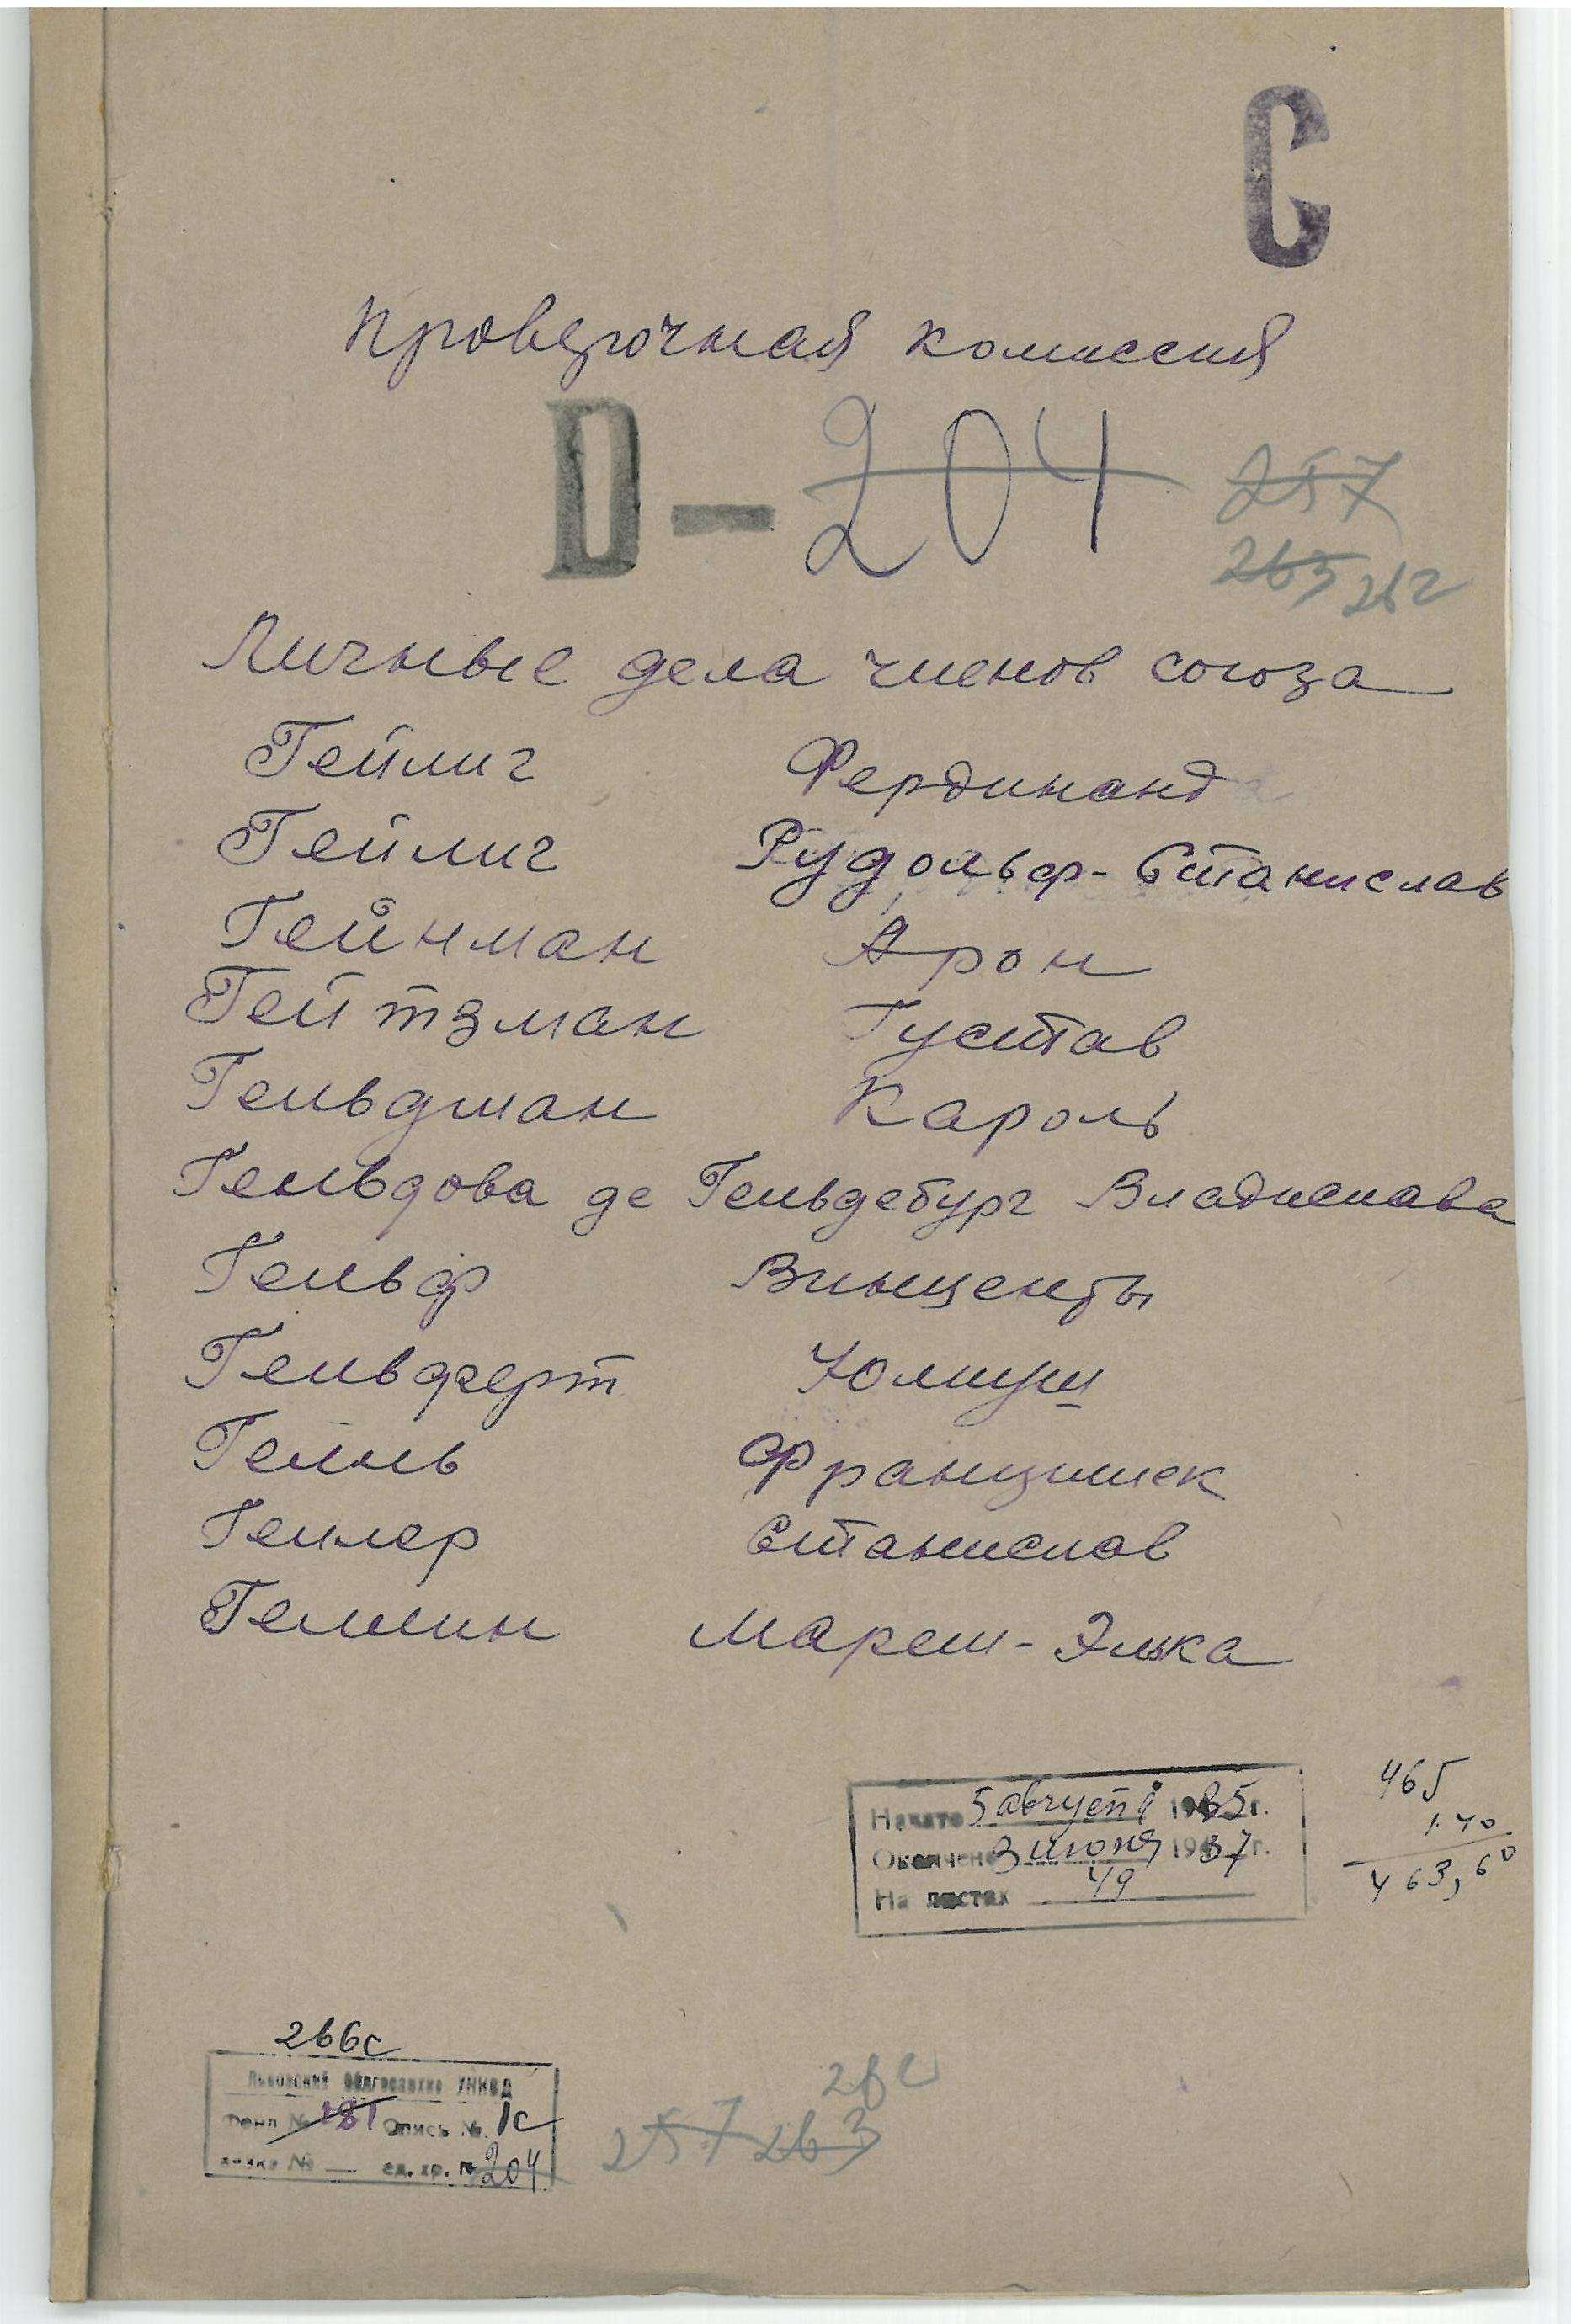 С
Проверочная комиссия
D — 204 257
263 262
Личные дела членов союза
Гейлиг Фердинанд
Гейлиг Рудольф-Станислав
Гейнман Арон
Гейтзман Густав
Гельдман Кароль
Гельдова де Гельдебург Владислава
Гельф Винценты
Гельфгерт Юлиуш
Гелль Францишек
Геллер Станислав
Геллин Мареш-Элька
Начато 5 августа 1935г.
Окончено 3 июня 1937г.
На листах 49
465
1.40
463,60
266с
Львовский Облгосархив УНКВД
Фонд № 181 Опись № 1с
№ — ед. хр. № 204
262
257 263